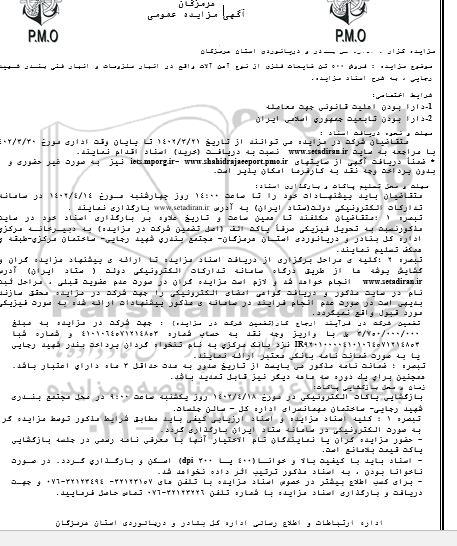 هرمزگان
آگهی مزایده عمومی
P.M.O
P.M.O
مزایده گزار : بنادر و دریانوردی استان هرمزگان
موضوع مزایده : فروش ۵۰۰ تن ضایعات فلزی از نوع آهن آلات واقع در انبار ملزومات و انبار فنی بندر شهید
رجایی ، به شرح اسناد مزایده.
شرایط اختصاصی:
1-دارا بودن اهلیت قانونی جهت معامله
2-دارا بودن تابعیت جمهوری اسلامی ایران
مهلت و نحوه دریافت اسناد :
متقاضیان شرکت در مزایده می توانند از تاریخ ۱۴۰۲/۳/۲۱ تا پایان وقت اداری مورخ ۱۴۰۲/۳/۳۰
با مراجعه به سایت www.setadiran.ir نسبت به دریافت (خرید) اسناد اقدام نمایند.
* ضمناً دریافت آگهی از سایتهای iets.mporg.ir- www.shahidrajaeeport.pmo.ir نیز به صورت غیر حضوری و
بدون پرداخت وجه نقد به کارفرما امکان پذیر است.
مهلت و محل تسلیم پاکات و بارگذاری اسناد:
متقاضیان باید پیشنهادات خود را تا ساعت ۱۴:۰۰ روز چهارشنبه مورخ ۱۴۰۲/۴/۱۴ در سامانه
تدارکات الکترونیکی دولت(ستاد ایران) به آدرس www.setadiran.ir بارگذاری نمایند
تبصره ۱ :متقاضیان مکلفند تا همین ساعت و تاریخ علاوه بر بارگذاری اسناد خود در سایت
مذکورنسبت به تحویل فیزیکی صرفاً پاکت الف (اصل تضمین شرکت در مزایده) به دبیرخانه مرکزی
اداره کل بنادر و دریانوردی استان هرمزگان- مجتمع بندری شهید رجایی- ساختمان مرکزی-طبقه ی
همکف تسلیم نمایند.
تبصره ۲ :کلیه ی مراحل برگزاری از دریافت اسناد مزایده تا ارائه ی پیشنهاد مزایده گران و
گشایش پوشه ها از طریق درگاه سامانه تدارکات الکترونیکی دولت ( ستاد ایران) آدرس
www.setadiran.ir انجام خواهد شد و لازم است مزایده گران در صورت عدم عضویت قبلی ، مراحل ثبت
نام در سایت مذکور و دریافت گواهی امضای الکترونیکی را جهت شرکت در مزایده محقق سازند
بدیهی است در صورت عدم انجام فرایند در سامانه ی مذکور پیشنهادات ارائه شده به صورت فیزیکی
مورد قبول واقع نمیگردد.
تضمین شرکت در فرآیند ارجاع کار(تضمین شرکت در مزایده) : جهت شرکت در مزایده به مبلغ
با واریز وجه نقد به حساب شماره و شماره شبا
نزد بانک مرکزی به نام تنخواه گردان پرداخت بندر شهید رجایی
یا به صورت ضمانت نامه بانکی معتبر ارائه نمایند.
تبصره : ضمانت نامه مذکور می بایست از تاریخ صدور به مدت حداقل ۳ ماه دارای اعتبار باشد.
همچنین برای یک دوره سه ماهه دیگر نیز قابل تمدید باشد.
زمان و محل بازگشایی پاکات:
بازگشایی پاکات الکترونیکی در مورخ ۱۴۰۲/۴/۱۸ روز یکشنبه ساعت ۹:۰۰ در محل مجتمع بندری
شهید رجایی- ساختمان مهمانسرای اداره کل – سالن جلسات.
تبصره ۱ : کلیه اسناد مزایده و اسناد ارزیابی کیفی باید مطابق شرایط مذکور توسط مزایده گر
به صورت الکترونیکی در سامانه ستاد ایران بارگذاری گردد.
- حضور مزایده گران یا نمایندگان تام الاختیار آنها با معرفی نامه رسمی در جلسه بازگشایی
پاکت قیمت بلامانع است.
- اسناد باید با کیفیت بالا و خوانا(۴۰۰ یا ۳۰۰ dpi) اسکن و بارگذاری گردد. در صورت
ناخوانا بودن ، به اسناد مذکور ترتیب اثر داده نخواهد شد.
- برای کسب اطلاع بیشتر در خصوص اسناد مزایده با تلفن های ۳۲۱۲۳۱۵۷- ۳۲۱۲۳۴۹۴-۰۷۶ و جهت
دریافت و بارگذاری اسناد مزایده با شماره تلفن ۳۲۱۲۳۲۲۶-۰۷۶ تماس حاصل فرمایید.
اداره ارتباطات و اطلاع رسانی اداره کل بنادر و دریانوردی استان هرمزگان